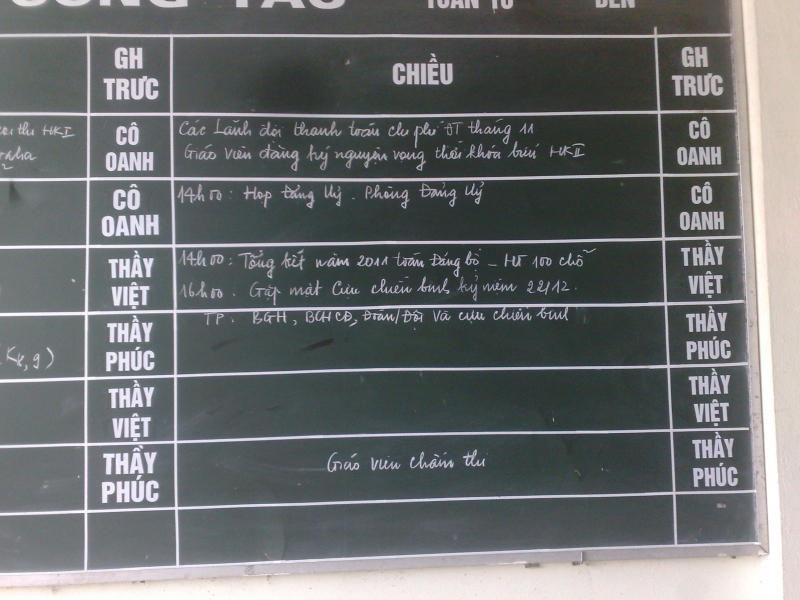 CÔNG TÁC TUẦN TỪ ĐẾN
GH TRỰC CHIỀU GH TRỰC
thi HKI CÔ OANH Các Lãnh đội thanh toán chi phí ĐT tháng 11 CÔ OANH
Giáo viên đăng ký nguyện vọng thời khóa biểu HKII
CÔ OANH 14h00: Họp Đảng Uỷ. Phòng Đảng Uỷ CÔ OANH
THẦY VIỆT 14h00: Tổng kết năm 2011 toàn Đảng bộ - HT 100 chỗ THẦY VIỆT
16h00. Gặp mặt Cựu chiến binh kỷ niệm 22/12.
THẦY PHÚC TP. BGH, BCHCĐ, Đoàn/Đội và cựu chiến binh THẦY PHÚC
THẦY VIỆT THẦY VIỆT
THẦY PHÚC Giáo viên chấm thi THẦY PHÚC